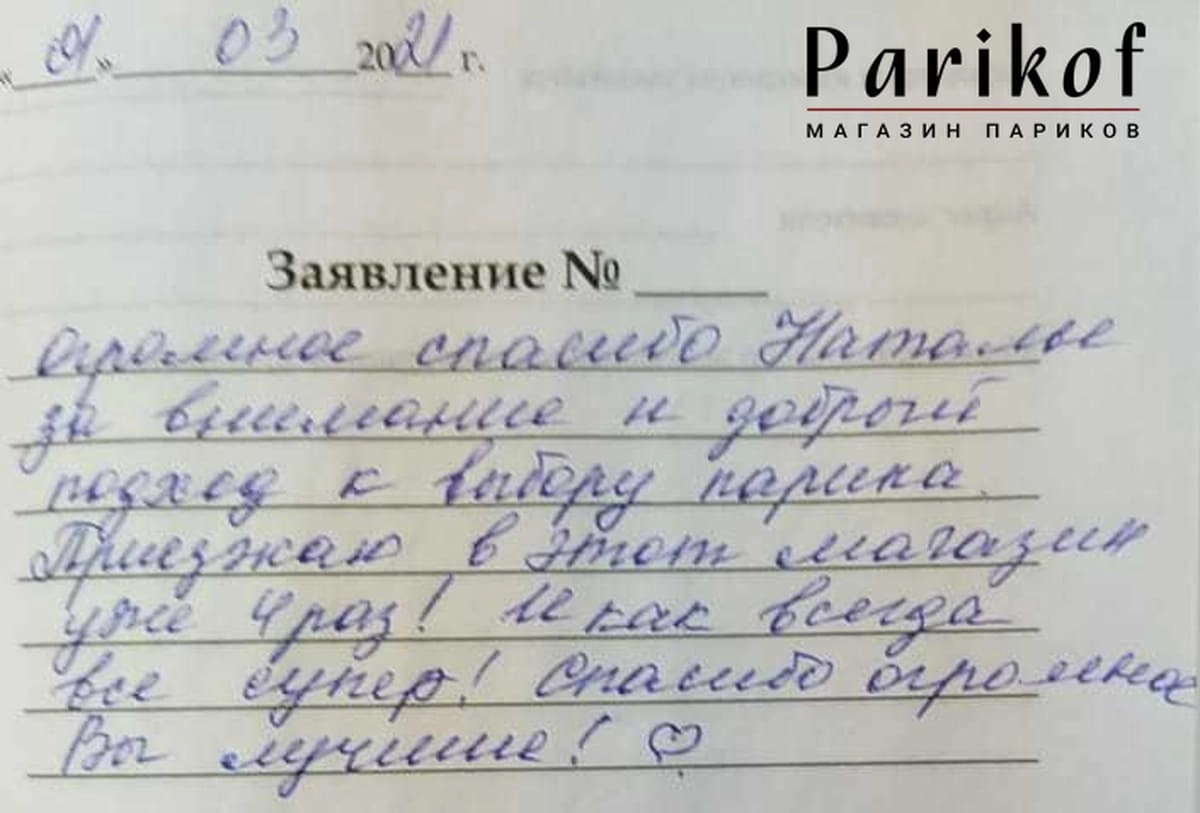 Parikof
МАГАЗИН ПАРИКОВ
03 2021 г.
Заявление №
огромное спасибо Наталье
за внимание и добрый
подход к выбору парика.
Приезжаю в этот магазин
уже 4 раз! И как всегда
все супер! Спасибо огромное
Вы лучшие! ♡